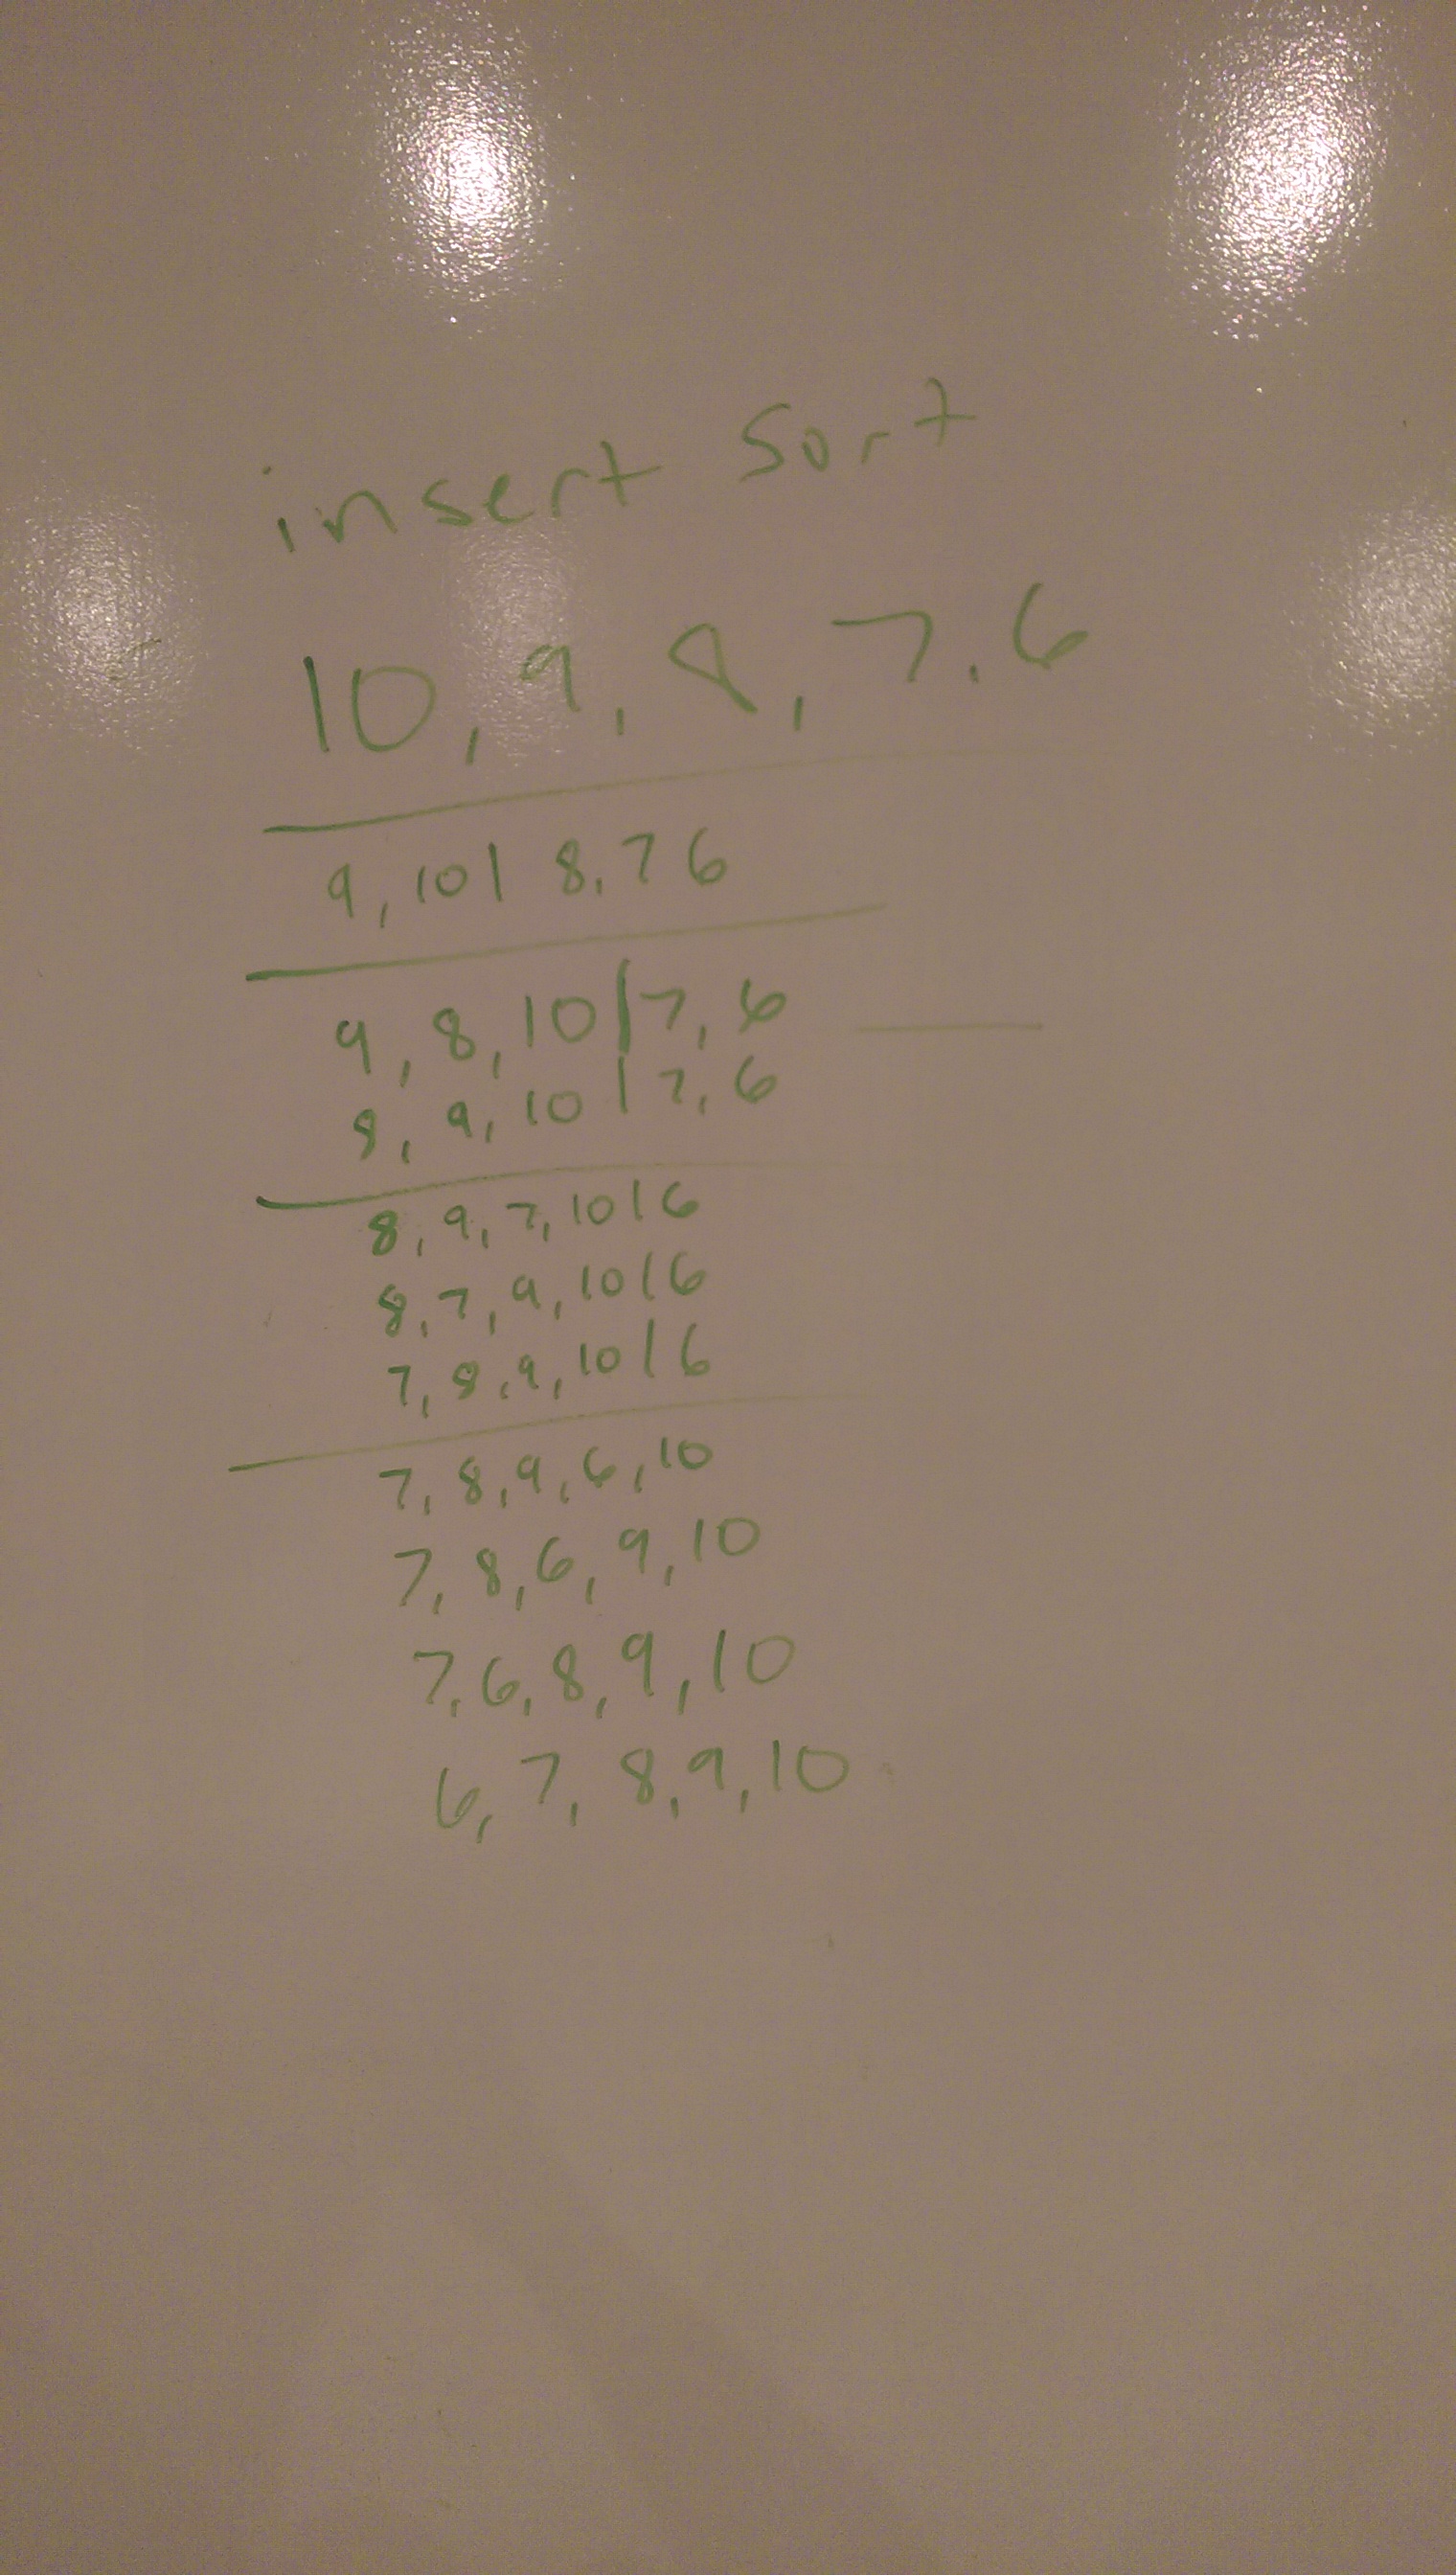 insert sort
10, 9, 8, 7, 6
9, 10 | 8, 7 6
9, 8, 10 | 7, 6
8, 9, 10 | 7, 6
8, 9, 7, 10 | 6
8, 7, 9, 10 | 6
7, 8, 9, 10 | 6
7, 8, 9, 6, 10
7, 8, 6, 9, 10
7, 6, 8, 9, 10
6, 7, 8, 9, 10